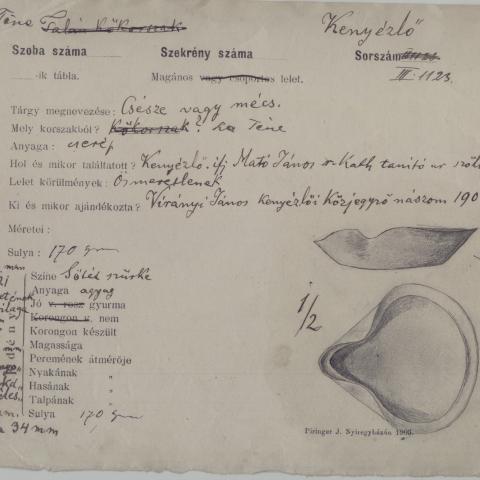 Téne Talán Kőkorszak
Kenyézlő
Szoba száma
Szekrény száma
Sorszám
III. 1123.
-ik tábla.
Magános vagy csoportos lelet.
Tárgy megnevezése: Csésze vagy mécs.
Mely korszakból? Kőkorszak? La Téne
Anyaga: cserép
Hol és mikor találtatott? Kenyézlő. ifj Mató János r. Kath tanító ur
Lelet körülmények: Ösmeretlenek
Ki és mikor ajándékozta? Virányi János kenyézlői Közjegyző nászom 190
Méretei:
Sulya: 170 gm
Szine Sötét szürke
Anyaga agyag
Jó v. rosz gyurma
Korongon v. nem
Korongon készült
Magassága
Peremének átmérője
Nyakának "
Hasának "
Talpának "
Sulya 170 gm
34 mm
1/2
Piringer J. Nyiregyházán 1905.